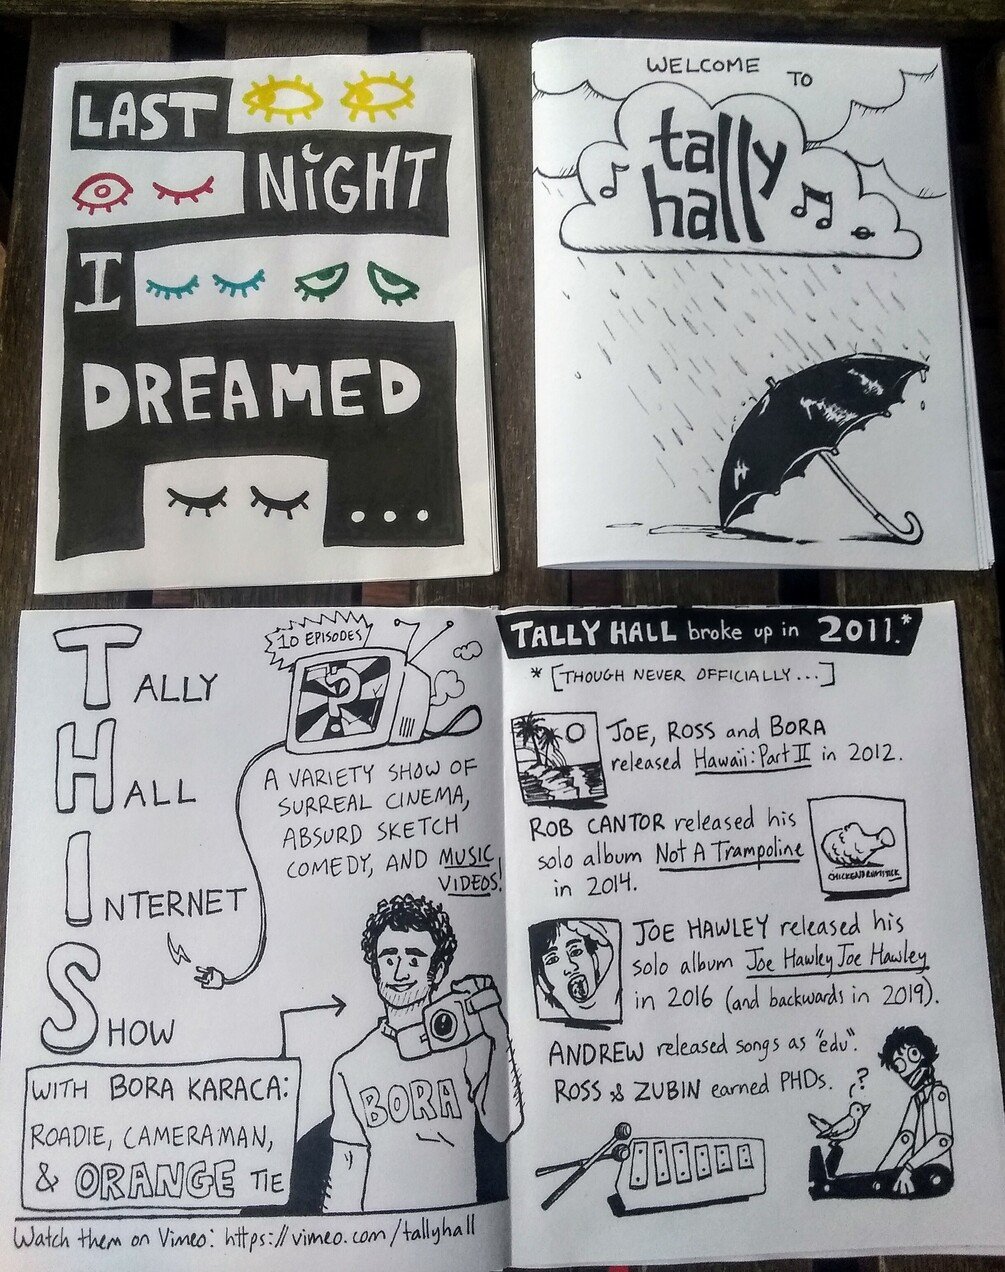 LAST
NiGHT
I
DREAMED
...
WELCOME TO
tally
hall
10 EPISODES
?
TALLY
HALL
INTERNET
SHOW
A VARIETY SHOW OF
SURREAL CINEMA,
ABSURD SKETCH
COMEDY, AND MUSIC
VIDEOS!
WITH BORA KARACA:
ROADIE, CAMERAMAN,
& ORANGE TIE
BORA
Watch them on Vimeo: https://vimeo.com/tallyhall
TALLY HALL broke up in 2011.*
* [THOUGH NEVER OFFICIALLY...]
JOE, ROSS and BORA
released Hawaii: Part II in 2012.
ROB CANTOR released his
solo album Not A Trampoline
in 2014.
CHICKEN DRUMSTICK
JOE HAWLEY released his
solo album Joe Hawley Joe Hawley
in 2016 (and backwards in 2019).
ANDREW released songs as "edu".
ROSS & ZUBIN earned PHDs.
?